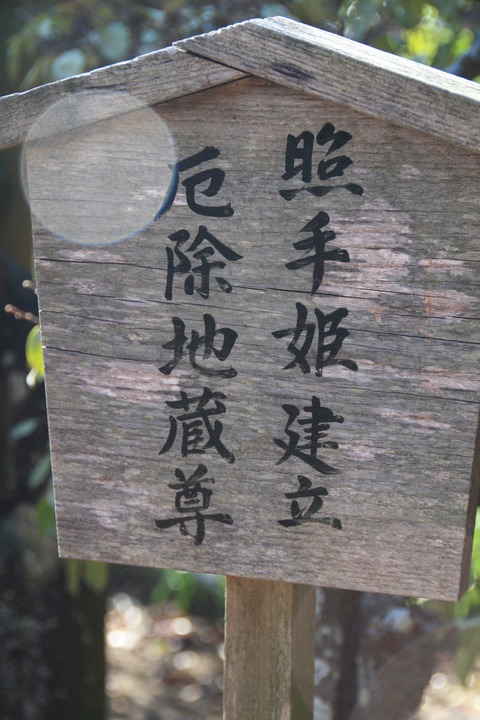 照手姫建立
厄除地蔵尊